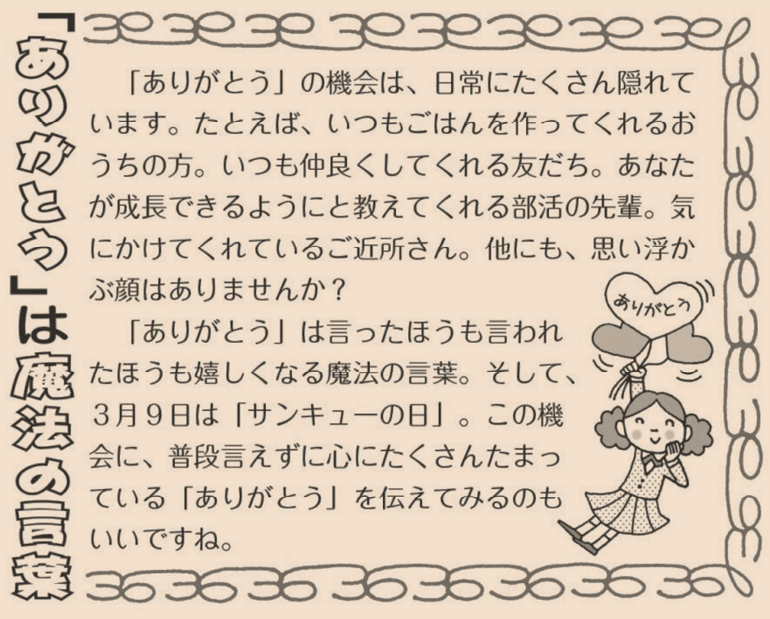 「ありがとう」は魔法の言葉
「ありがとう」の機会は、日常にたくさん隠れて
います。たとえば、いつもごはんを作ってくれるお
うちの方。いつも仲良くしてくれる友だち。あなた
が成長できるようにと教えてくれる部活の先輩。気
にかけてくれているご近所さん。他にも、思い浮か
ぶ顔はありませんか？
「ありがとう」は言ったほうも言われ
たほうも嬉しくなる魔法の言葉。そして、
３月９日は「サンキューの日」。この機
会に、普段言えずに心にたくさんたまっ
ている「ありがとう」を伝えてみるのも
いいですね。
ありがとう